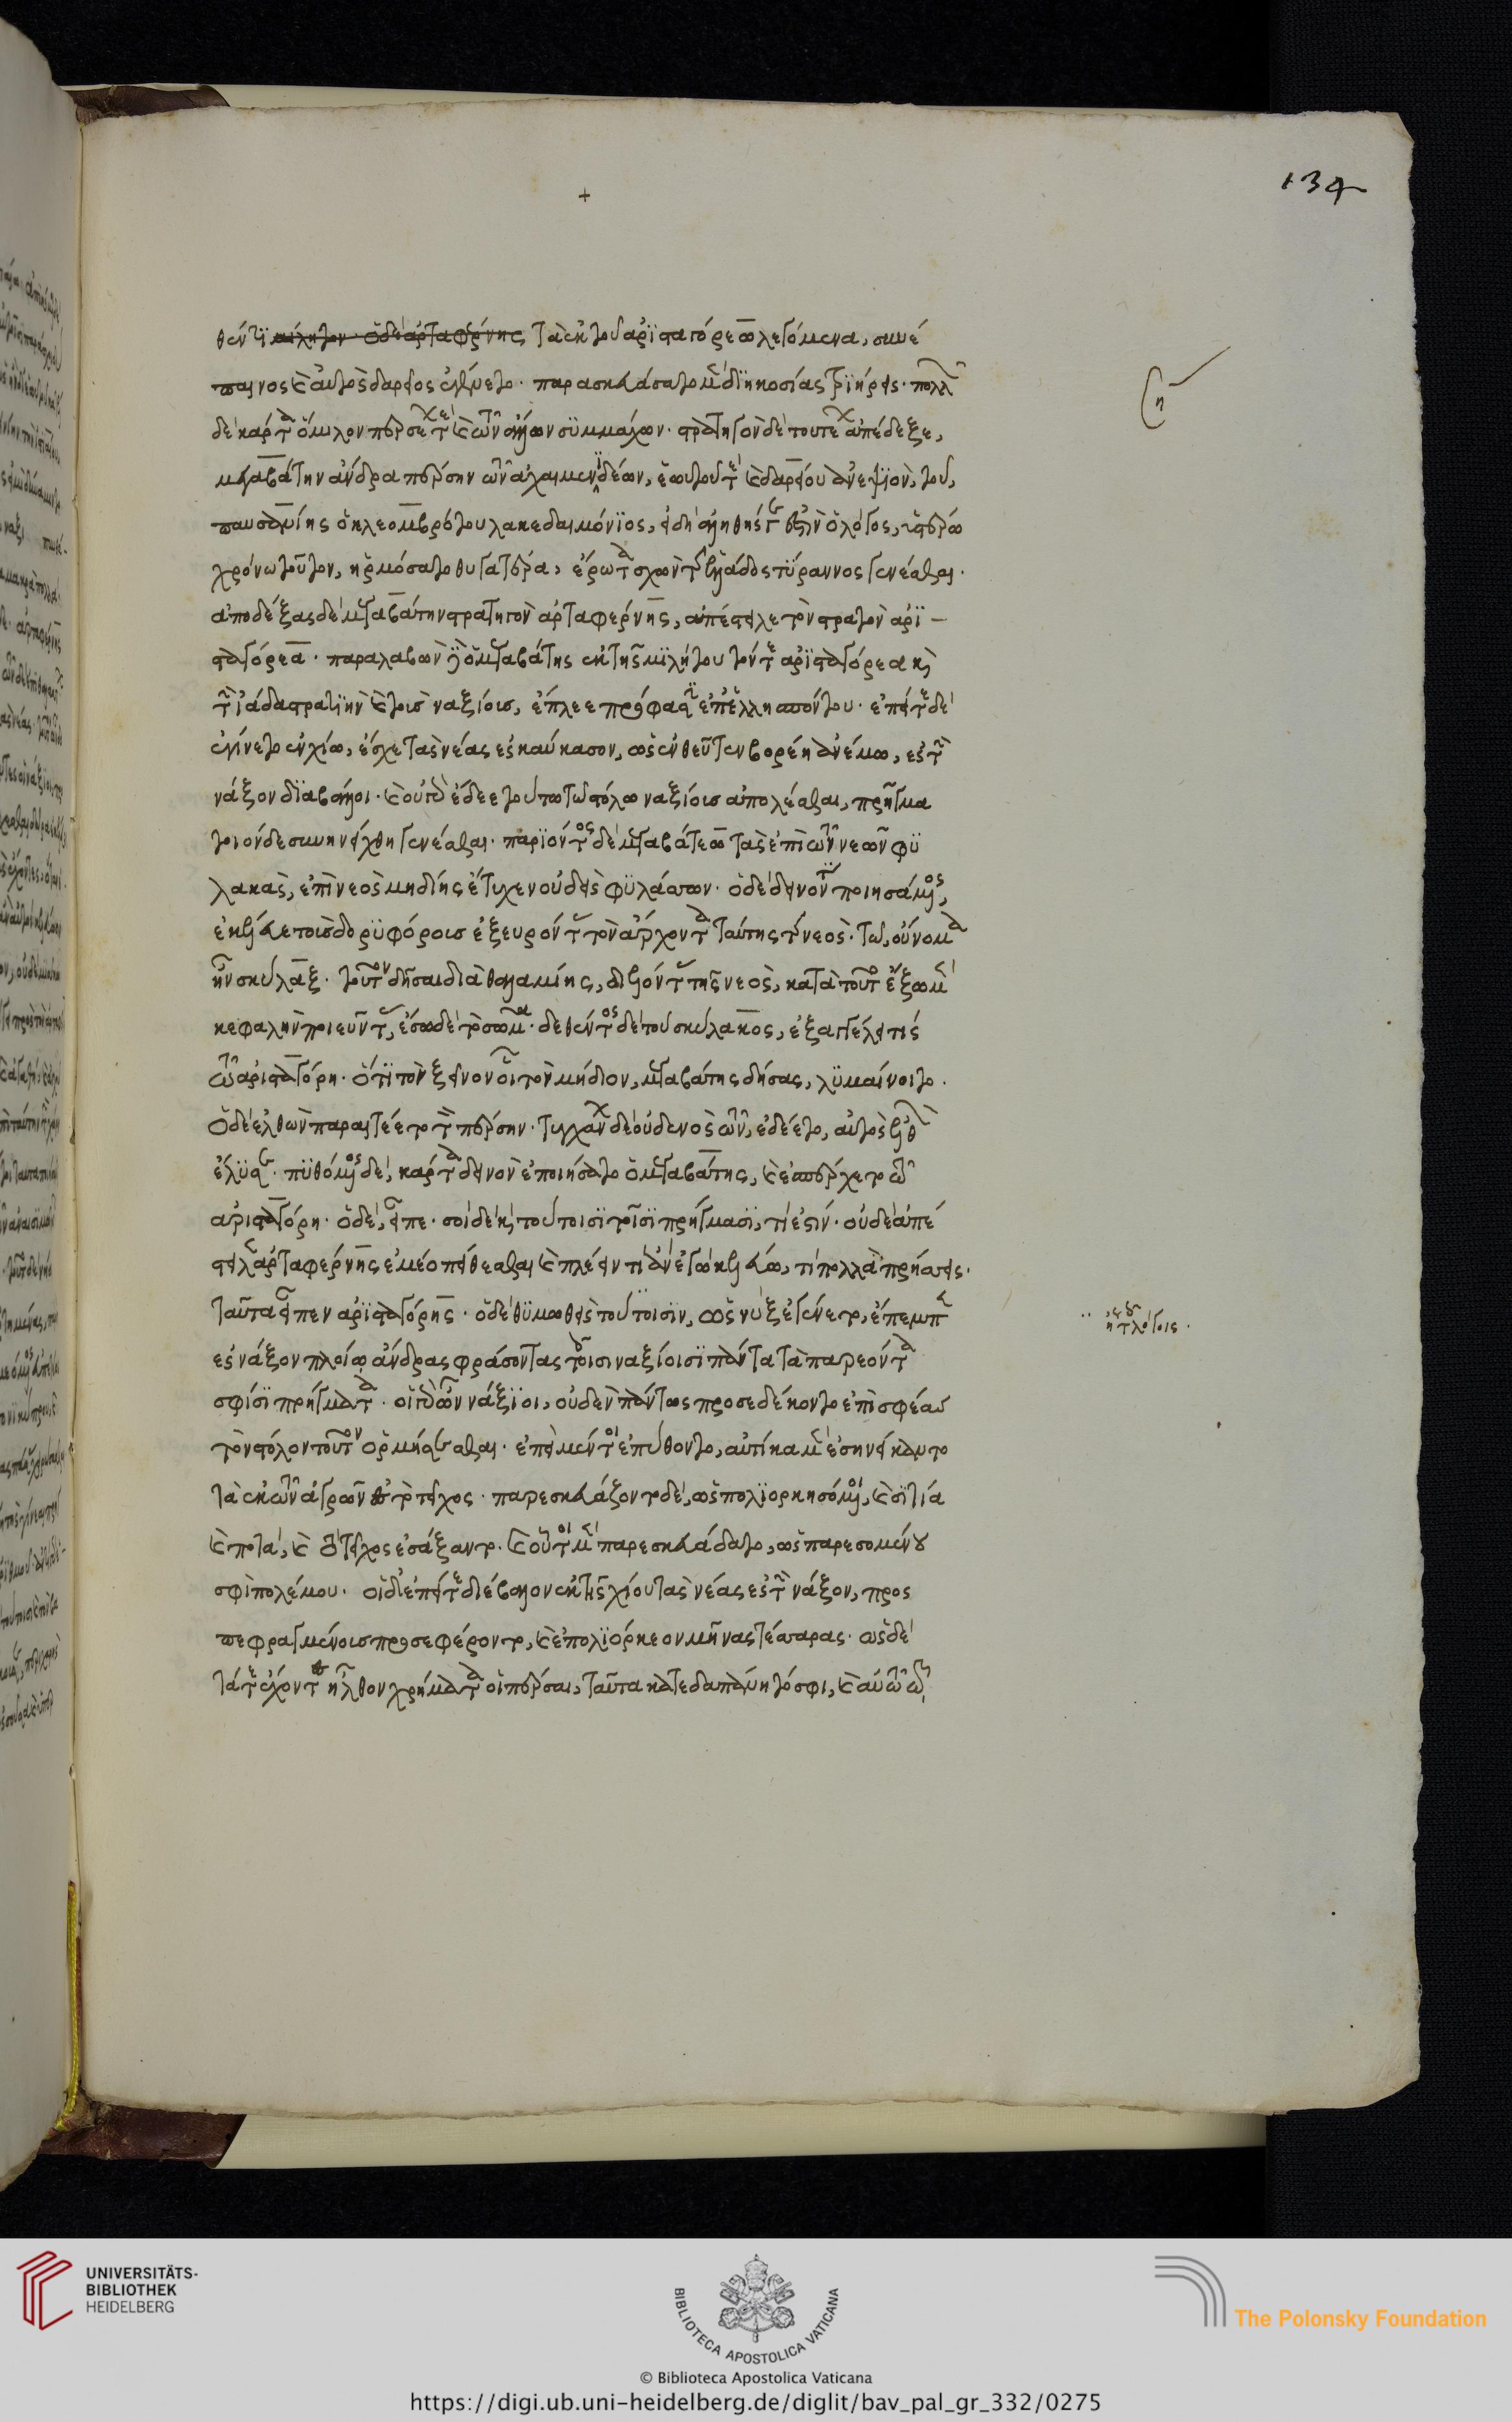 134
θέντι μίλητον ὁ δὲ ἀρταφρένης τὰ ἐκ τοῦ ἀρϊσταγόρεω λεγόμενα, συνέ
παινος καὶ αὐτὸς δαρεῖος ἐγένετο. παρεσκευάσατο μὲν διηκοσίας τριήρεις. πολλὸν
δὲ κάρτα ὅμιλον περσέων τε καὶ τῶν ἄλλων συμμάχων. στρατηγὸν δὲ τουτέων ἀπέδεξε,
μεγαβάτην ἄνδρα πέρσην τῶν ἀχαιμενϊδέων, ἑωυτοῦ τε καὶ δαρείου ἀνεψιὸν, τοῦ,
παυσανίης ὁ κλεομβρότου λακεδαιμόνϊος, εἰ δὴ ἀληθής γε ἐστὶν ὁ λόγος, ὑστέρω
χρόνω τούτων, ἡρμόσατο θυγατέρα, ἔρωτα σχὼν τῆς ἑλλάδος τύραννος γενέσθαι.
ἀποδέξας δὲ μεγαβάτην στρατηγὸν ἀρταφέρνης, ἀπέστειλε τὸν στρατὸν ἀρϊ-
σταγόρεα. παραλαβὼν δὲ ὁ μεγαβάτης ἐκ τῆς μϊλήτου τόν τε ἀρϊσταγόρεα καὶ
τὴν ἰάδα στρατϊὴν καὶ τοὺς ναξίους, ἔπλεε πρόφασιν ἐπ' ἑλλησπόντου. ἐπεί τε δὲ
ἐγίνετο ἐν χίω, ἔσχε τὰς νέας ἐς καύκασον, ὡς ἐνθεῦτεν βορέη ἀνέμω, ἐς τὴν
νάξον διαβάλοι. καὶ οὐ γὰρ ἔδεε τούτω τῶ στόλω ναξίους ἀπολέσθαι, πρῆγμα
τοιόνδε συνηνείχθη γενέσθαι. περιϊόντος δὲ μεγαβάτεω τὰς ἐπὶ τῶν νεῶν φυ
λακὰς, ἐπὶ νεὸς μηδίης ἔτυχεν οὐδεὶς φυλάσσων. ὁ δὲ δεινόν τι ποιησάμενος,
ἐκέλευε τοὺς δορυφόρους ἐξευρόντας τὸν ἄρχοντα ταύτης τῆς νεὸς. τῶ, οὔνομα
ἦν σκύλαξ. τοῦτον δῆσαι διὰ θαλαμίης, διελόντας τῆς νεὸς, κατὰ τοῦτο ἔξω μὲν
κεφαλὴν ποιεῦντας, ἔσω δὲ τὸ σῶμα. δεθέντος δὲ τοῦ σκύλακος, ἐξαγγέλλει τὶς
τῶ ἀρισταγόρη. ὅτι τὸν ξεῖνον οἱ τὸν μήδιον, μεγαβάτης δήσας, λυμαίνοιτο.
ὁ δὲ ἐλθὼν παραιτέετο τὸν πέρσην. τυγχάνων δὲ οὐδενὸς τῶν, ἐδέετο, αὐτὸς ἐλθὼν
ἔλυσε. πυθόμενος δὲ, κάρτα δεινὸν ἐποιήσατο ὁ μεγαβάτης, καὶ ἐσπέρχετο τῶ
ἀρισταγόρη. ὁ δὲ, εἶπε. σοὶ δὲ καὶ τούτοισϊ τοῖσϊ πρήγμασϊ, τί ἐστίν. οὐδὲ ἀπέ
στειλε ἀρταφέρνης ἐμέο πείθεσθαι καὶ πλέειν τῆ ἂν ἐγὼ κελεύω, τί πολλὰ πρήσσεις.
ταῦτα εἶπεν ἀρϊσταγόρης. ὁ δὲ θυμωθεὶς τούτοισϊν, ὡς νὺξ ἐγένετο, ἔπεμπε
ἐς νάξον πλοίω ἄνδρας φράσοντας τοῖσι ναξίοισϊ πάντα τὰ παρεόντα
σφίσϊ πρήγματα. οἱ γὰρ ὦν νάξϊοι, οὐδὲν πάντως προσεδέκοντο ἐπὶ σφέας
τὸν στόλον τοῦτον ὁρμήσεσθαι. ἐπεὶ μέντοι ἐπύθοντο, αὐτίκα μὲν ἐσηνείκαντο
τὰ ἐκ τῶν ἀγρῶν ἐς τὸ τεῖχος. παρεσκευάζοντο δὲ, ὡς πολϊορκησόμενοι, καὶ σϊτία
καὶ ποτὰ, καὶ τὸ τεῖχος ἐσάξαντο. καὶ οὗτοι μὲν παρεσκευάδατο, ὡς παρεσομένου
σφι πολέμου. οἱ δ' ἐπεί τε διέβαλον ἐκ τῆς χίου τὰς νέας ἐς τὴν νάξον, προς
πεφραγμένους προσεφέροντο, καὶ ἐπολϊόρκεον μῆνας τέσσαρας. ὡς δὲ
τά τε ἔχοντες ἦλθον χρήματα οἱ πέρσαι, ταῦτα κατεδαπάνητό σφι, καὶ αὐτῶ τῶ
UNIVERSITÄTS-
BIBLIOTHEK
HEIDELBERG
BIBLIOTECA APOSTOLICA VATICANA
The Polonsky Foundation
© Biblioteca Apostolica Vaticana
https://digi.ub.uni-heidelberg.de/diglit/bav_pal_gr_332/0275